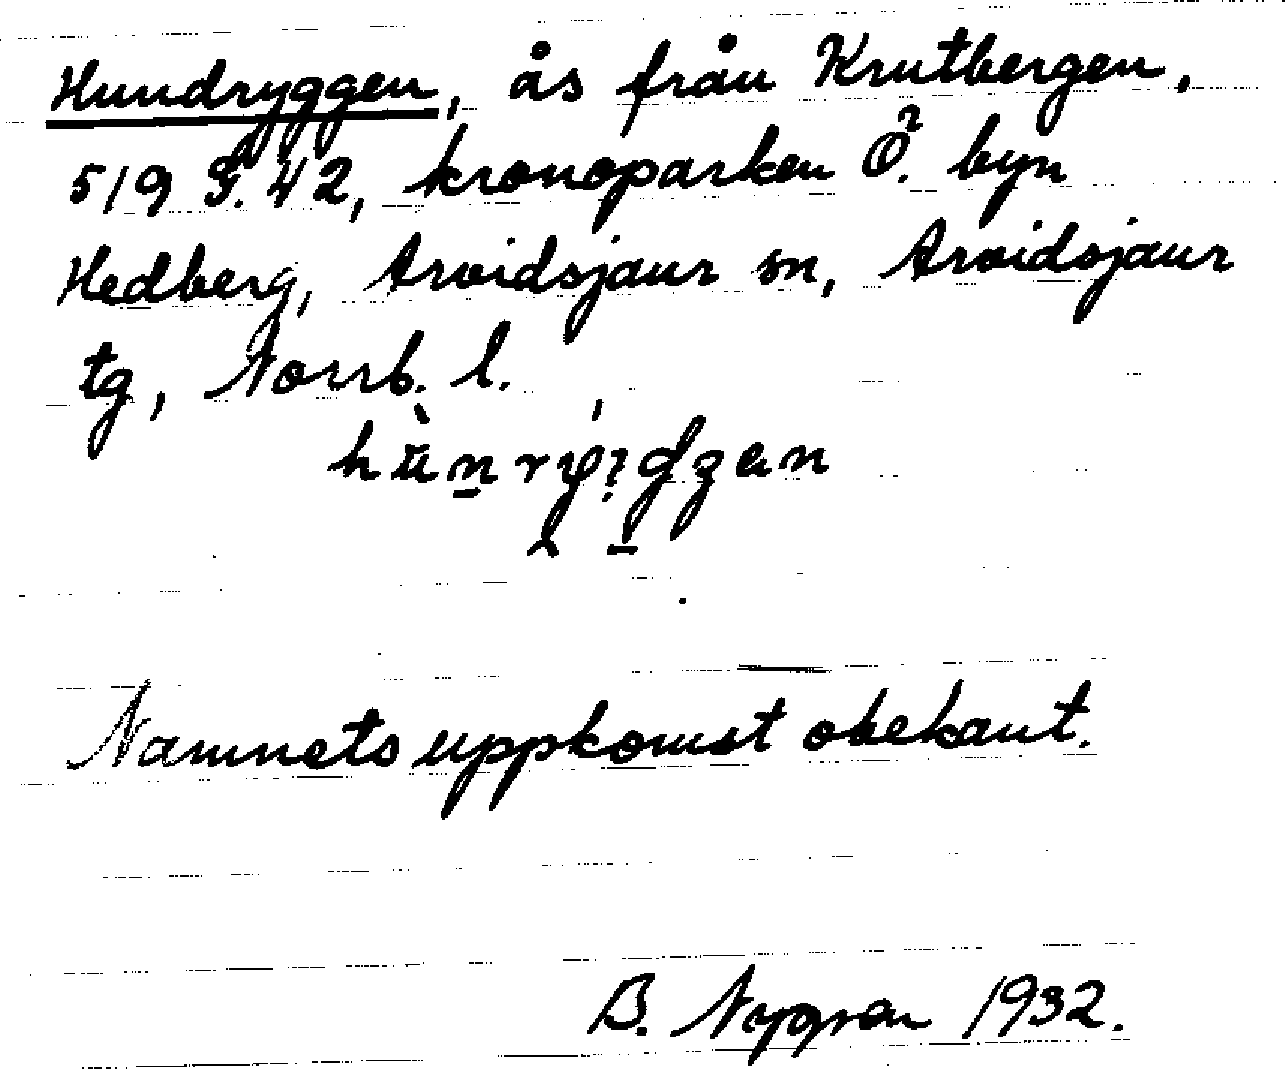 Hundryggen, ås från Krutbergen,
5/9 S. 42, kronoparken Ö. byn
Hedberg, Arvidsjaur sn, Arvidsjaur
tg, Norrb. l.
Namnets uppkomst obekant.
B. Nygren 1932.